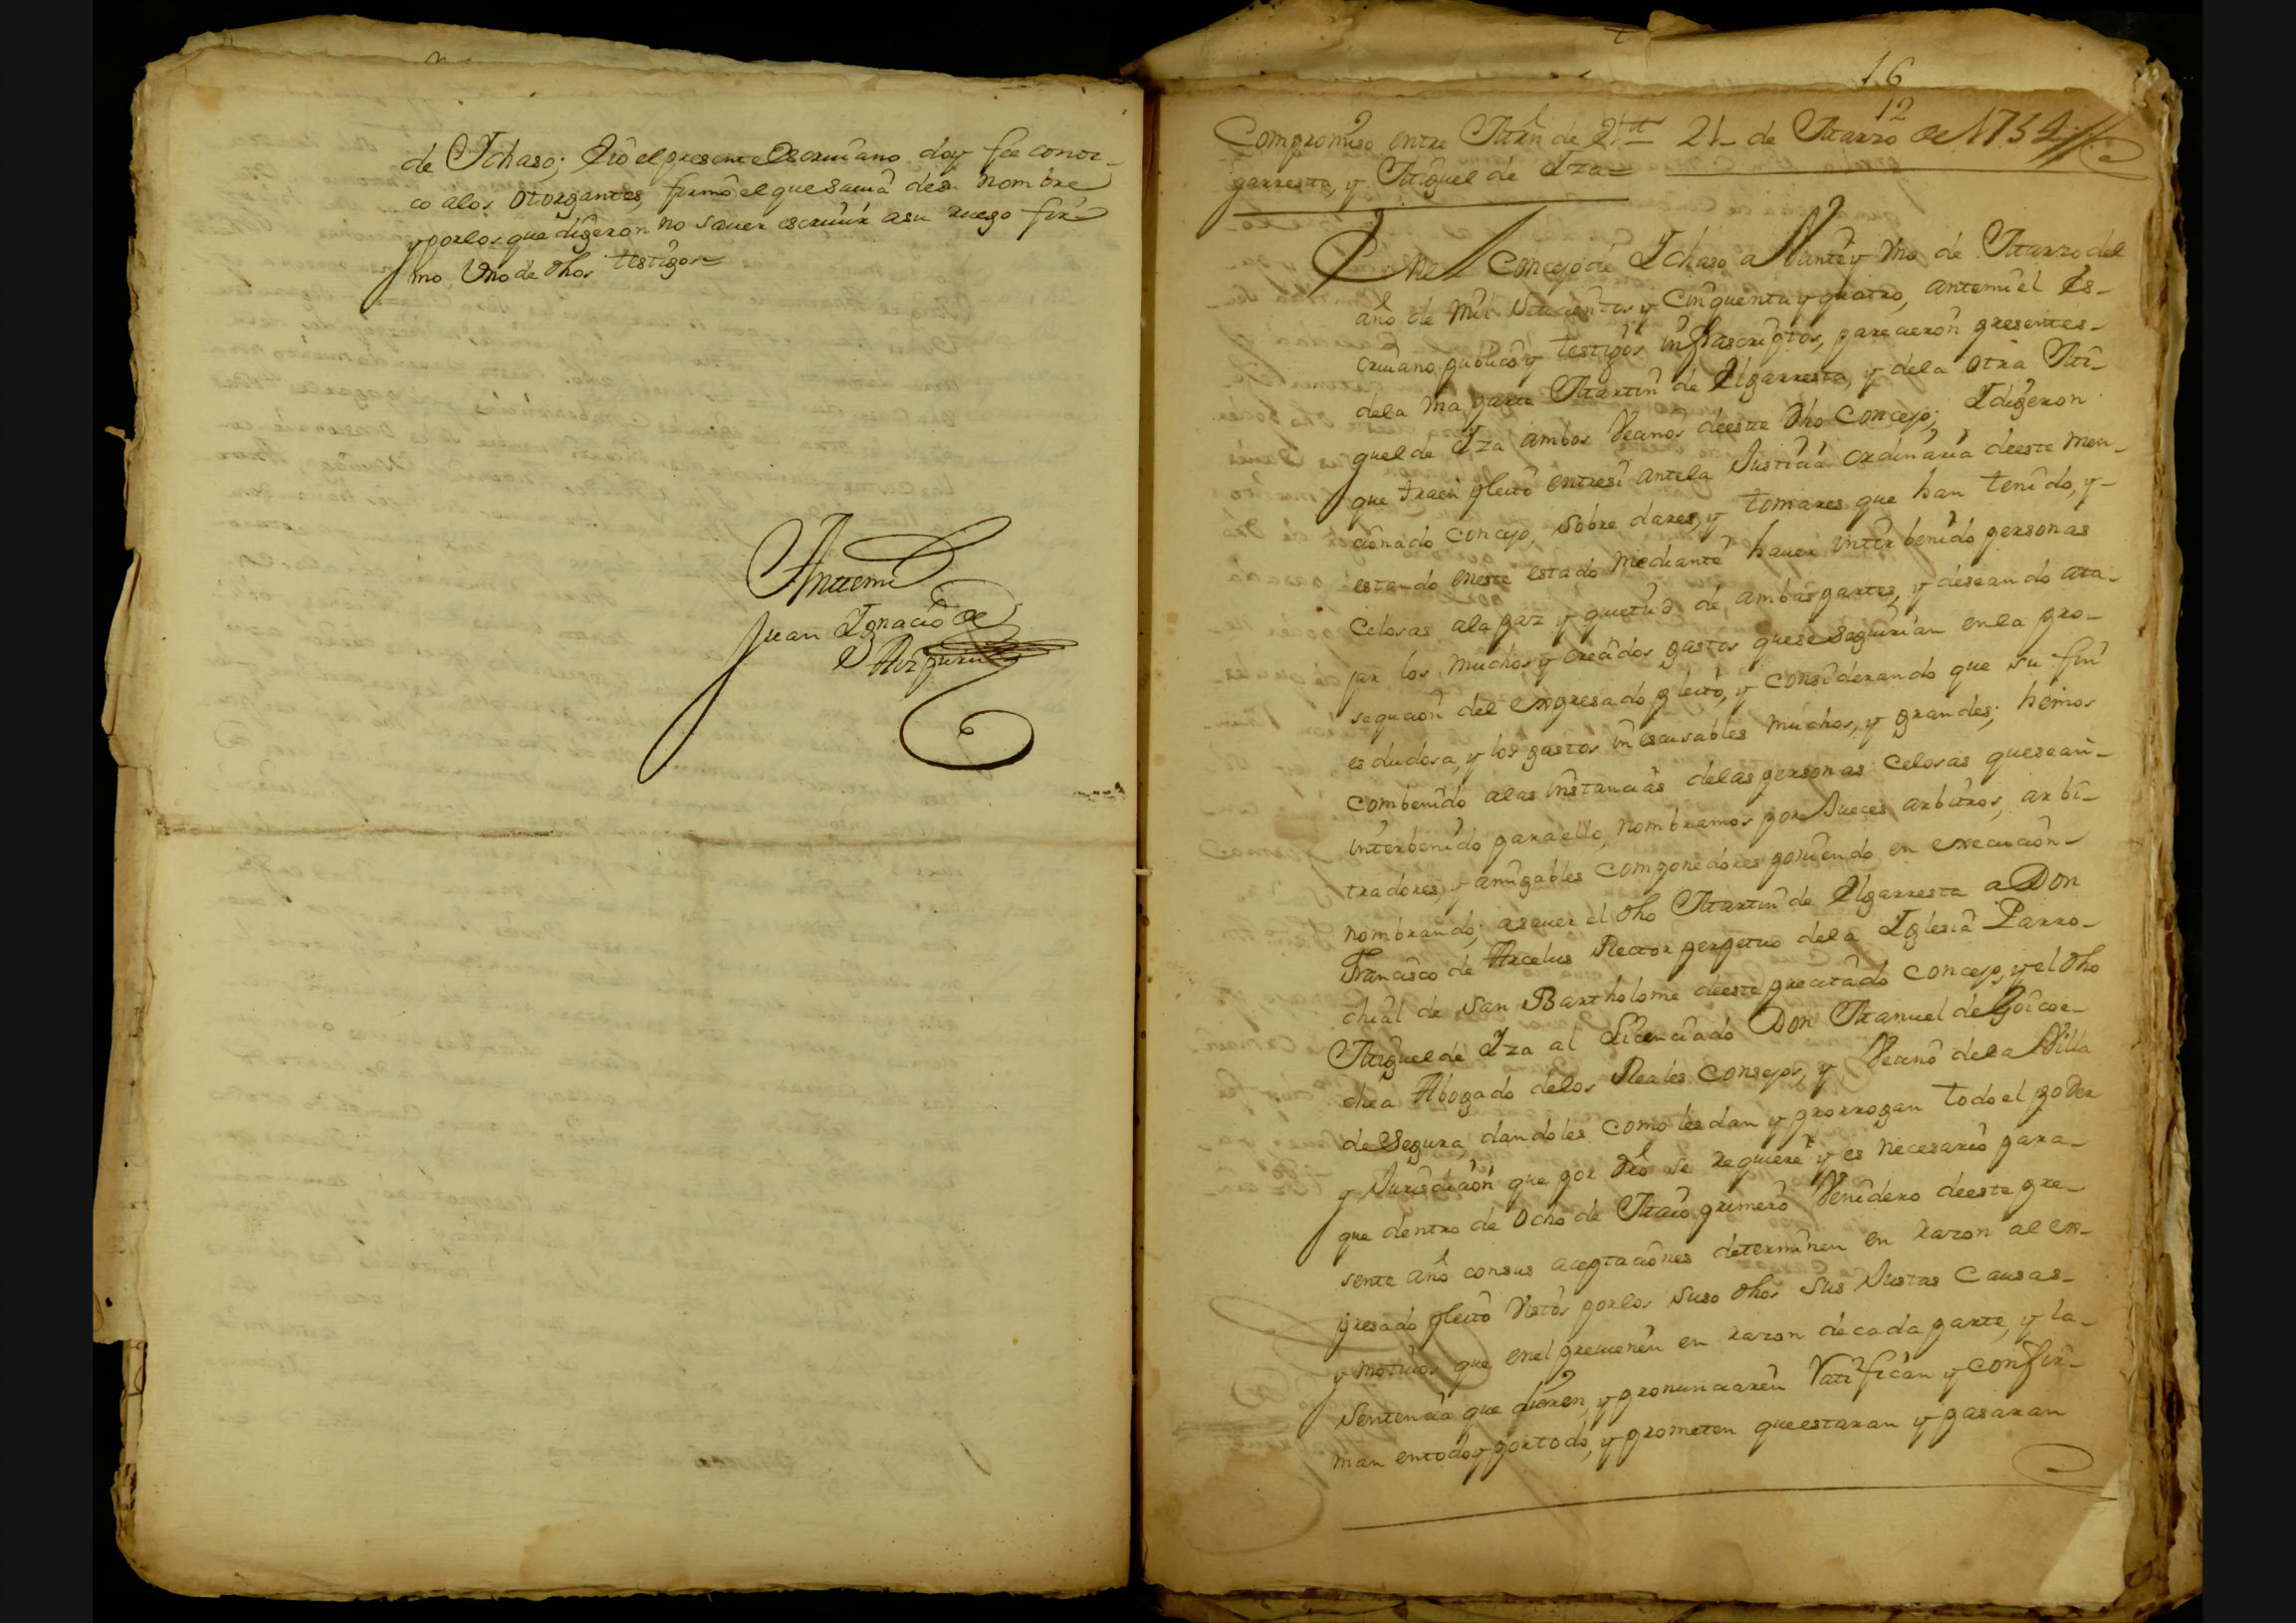 de Ichaso; Yo el presente Escriuano doy fee conoz-
co alos otorgantes, firmó el que sauia desu nombre
y porlos que digeron no sauer escriuir asu ruego fir-
mo Uno de dhos testigos=
Antemi
Juan Ignacio de
16
12
Compromiso entre Mrn de El- 21 de Marzo de 1754
garresta, y Miguel de Yza=
Enel Concejo de Ichaso a Veinte y Uno de Marzo del
año de mil Setecientos y Cinquenta y quatro, antemi el Es-
criuano publico y testigos infrascriptos, parecieron presentes-
dela Una parte Martin de Elgarresta, y dela otra Mi-
guel de Yza ambos Vecinos deeste dho Concejo; Y digeron
que traen pleito entresi antela Justicia ordinaria deeste men-
cionado Concejo, sobre dares, y tomares que han tenido, y-
estando eneste estado mediante hauer interbenido personas
Celosas ala paz y quietud de ambas partes, y deseando ata-
jar los muchos y crecidos gastos quese seguirian en la pro-
seguicion del expresado pleito, y considerando que su fin
es dudosa, y los gastos inescusables muchos, y grandes; hemos
combenido alas instancias delas personas Celosas quesean-
interbenido para ello, nombramos por Jueces arbitros, arbi-
tradores, y amigables componedores poniendo en execucion-
nombrando; asauer el dho Martin de Elgarresta a Don
Francisco de Arcelus Rector perpetuo dela Iglesia Parro-
chial de San Bartholome deeste precitado Concejo, y el dho
Miguel de Yza al Licenciado Don Manuel de Goicoe-
chea Abogado delos Reales Consejos, y Vecino dela Villa
de Segura, dandoles como les dan y prorrogan todo el poder
y Jurisdicion que por dro se requiere y es necesario para-
que dentro de ocho de Maio primero Venidero deeste pre-
sente año consus aceptaciones determinen en razon al ex-
presado pleito Vistos porlos suso dhos sus Justas Causas-
y motiuos que enel preuienen en razon de cada parte, y la-
Sentencia que dieren, y pronunciaren Ratifican y confir-
man entodo y portodo, y prometen queestaran y pasaran